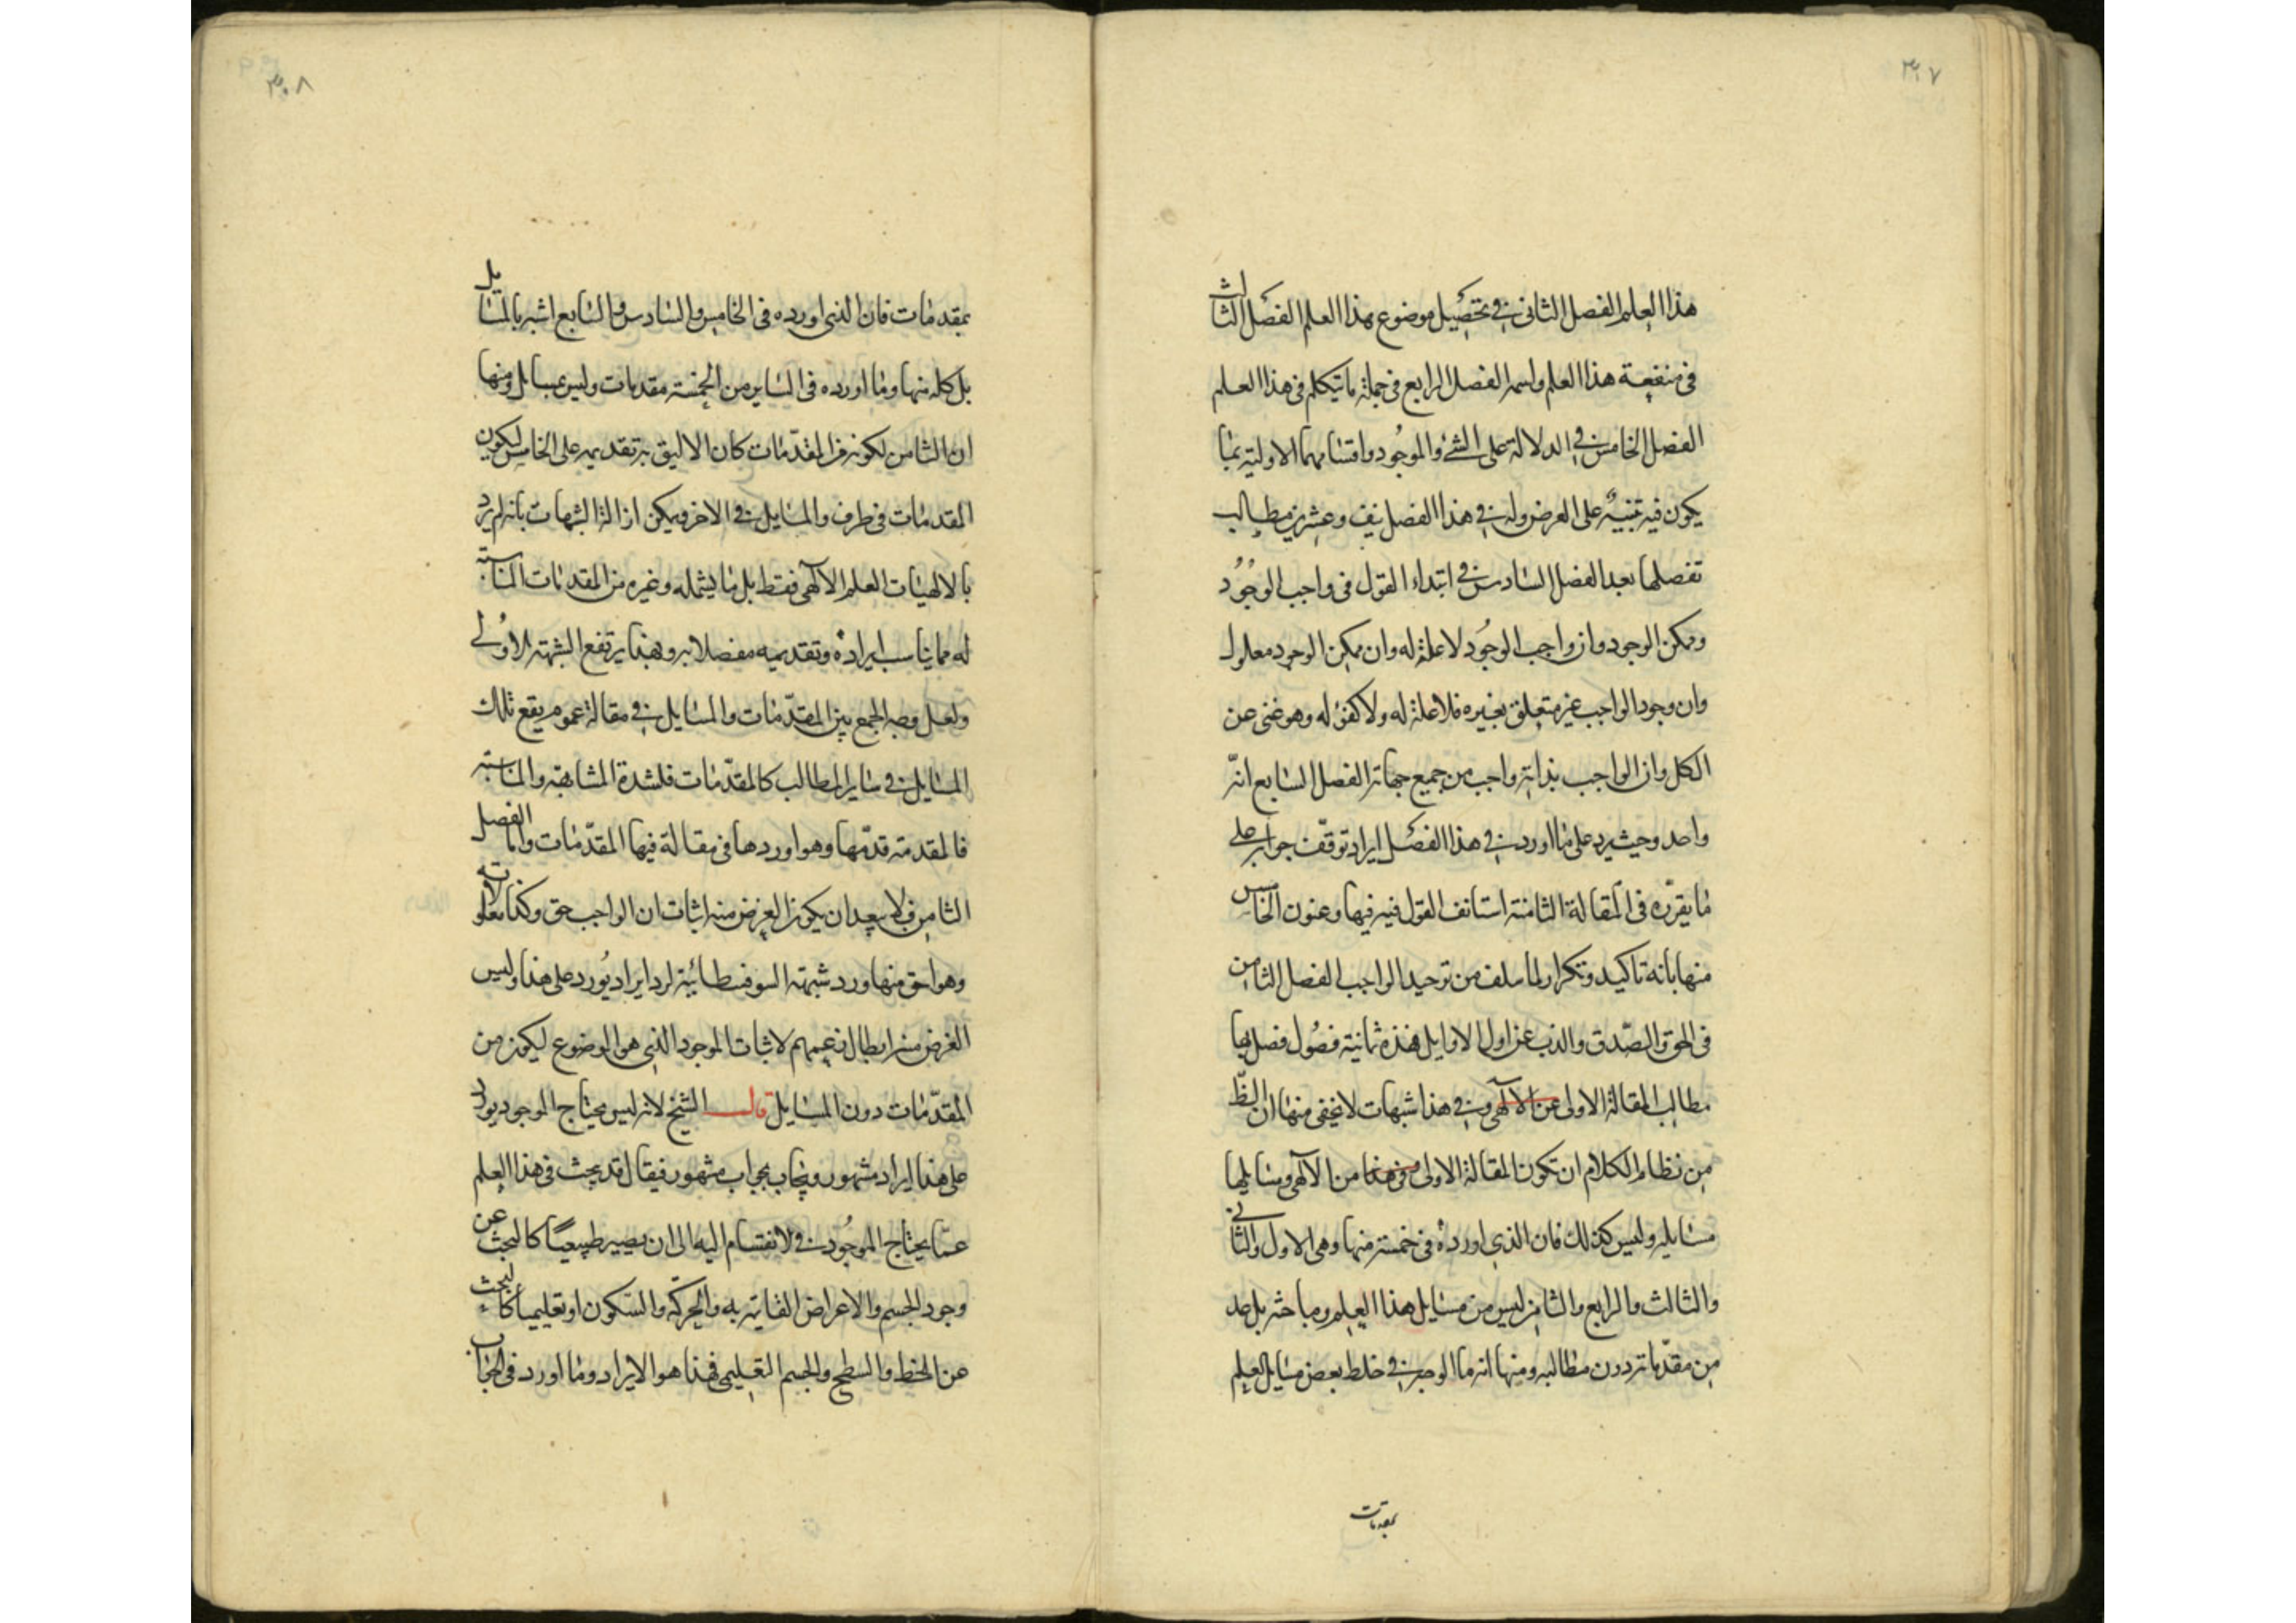 ٣٠٧
هذا العلم الفصل الثانى فى تحصيل موضوع هذا العلم الفصل الثالث
فى منفعة هذا العلم واسمه الفصل الرابع فى جملة ما يتكلم فى هذا العلم
الفصل الخامس فى الدلالة على الشئ والموجود واقسامهما الاولية بما
يكون فيه تنبيه على الغرض وله فى هذا الفصل نيف وعشرين مطالب
تفصلها بعد الفصل السادس فى ابتداء القول فى واجب الوجود
وممكن الوجود وان واجب الوجود لا علة له وان ممكن الوجود معلول
وان وجود الواجب غير متعلق بغيره فلا علة له ولا كفؤ له وهو غنى عن
الكل وان الواجب بذاته واجب من جميع جهاته الفصل السابع انه
واحد وحيث يرد على ما اورد فى هذا الفصل ايراد توقف جوابه على
ما يقرره فى المقالة الثامنة استانف القول فيه فيها وعنون الخامس
منها بانه تاكيد وتكرار لما سلف من توحيد الواجب الفصل الثامن
فى الحق والصدق والذب عن اول الاوايل فهذه ثمانية فصول فصل بها
مطالب المقالة الاولى عن الآلهى وفى هذا شبهات لا يخفى منها ان الظ
من نظام الكلام ان تكون المقالة الاولى فى هذا من الآلهى ومسايلها
مسايله وليس كذلك فان الذى اورده فى خمسة منها وهى الاول والثانى
والثالث والرابع والثامن ليس من مسايل هذا العلم ومباحثه بل عد
من مقدماته دون مطالبه ومنها انه ما الوجه فى خلط بعض مسايل العلم
بمقدمات
٣٠٨
بمقدمات فان الذى اورده فى الخامس والسادس والسابع اشبه بالمسايل
بل كله منها وما اورده فى الساير من الخمسة مقدمات وليس بمسايل ومنها
ان الثامن لكونه من المقدمات كان الاليق به تقديمه على الخامس ليكون
المقدمات فى طرف والمسايل فى الاخر ويمكن ازالة الشبهات بانه لم يرد
بالالهيات العلم الآلهى فقط بل ما يشمله وغيره من المقدمات المناسبة
له مما يناسب ايراده وتقديمه مفصلا به وبهذا يرتفع الشبهة الاولى
ولعل وجه الجمع بين المقدمات والمسايل فى مقالة عموم يقع تلك
المسايل فى ساير المطالب كالمقدمات فلشدة المشابهة والمناسبة
فالمقدمة قدمها وهو اوردها فى مقالة فيها المقدمات واما الفصل
الثامن فلا يبعد ان يكون الغرض منه اثبات ان الواجب حق وكذا معلولاته
وهو احق منها ورد شبهة السوفسطائية لرد ايراد يورد على هذا وليس
الغرض منه ابطال زعمهم لاثبات الموجود الذى هو الموضوع ليكون من
المقدمات دون المسايل قال الشيخ لانه ليس يحتاج الموجود يورد
على هذا ايراد مشهور ويجاب بجواب مشهور فيقال قد يبحث فى هذا العلم
عما يحتاج الموجود فى الانقسام اليه الى ان يصير طبيعيا كالبحث عن
وجود الجسم والاعراض القائمة به والحركة والسكون او تعليميا كالبحث
عن الخط والسطح والجسم التعليمى فهذا هو الايراد وما اورد فى الجواب